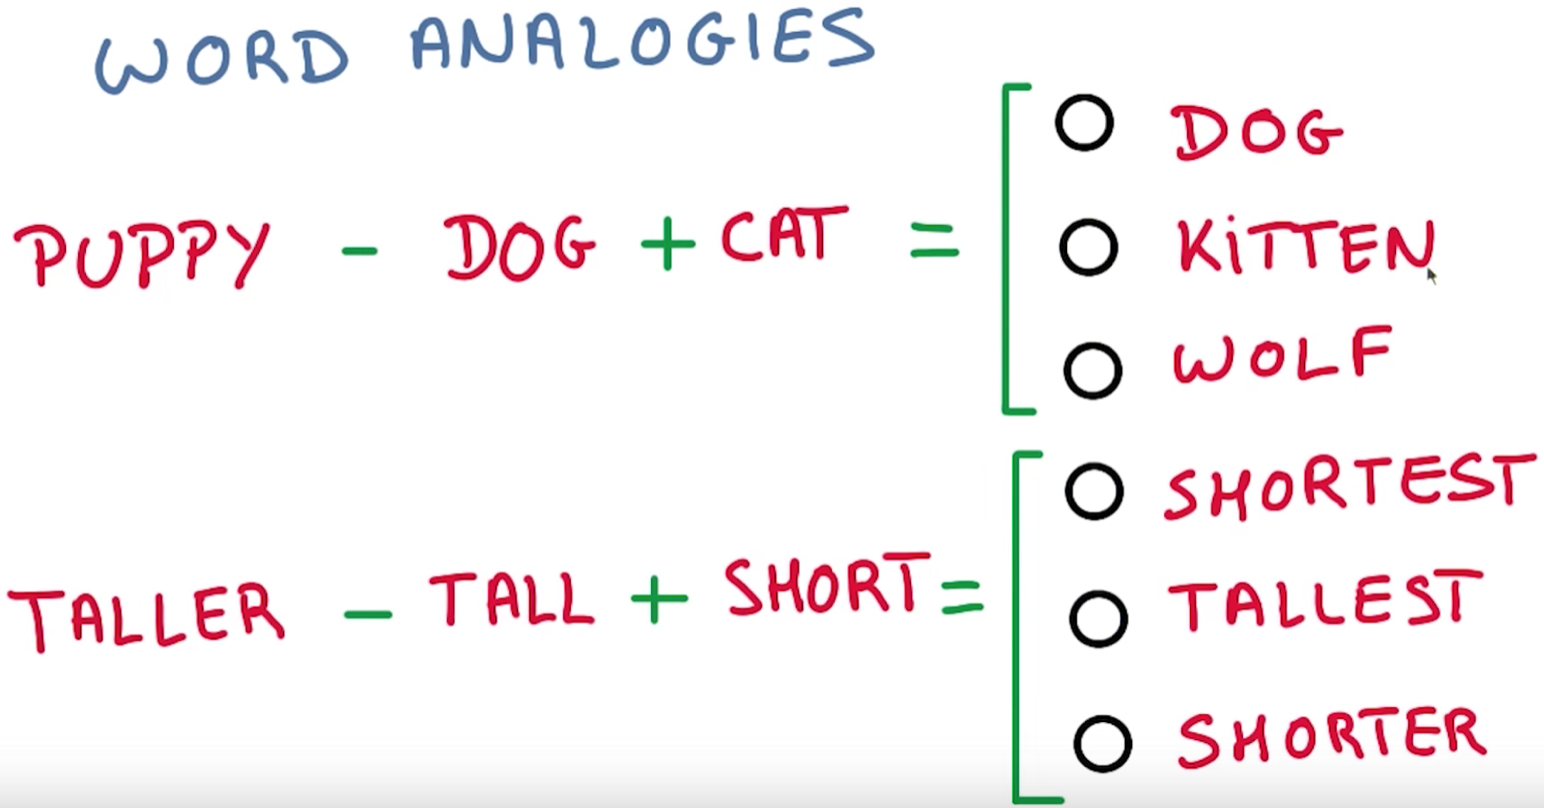 WORD ANALOGIES
PUPPY - DOG + CAT =
DOG
KiTTEN
WOLF
TALLER - TALL + SHORT =
SHORTEST
TALLEST
SHORTER